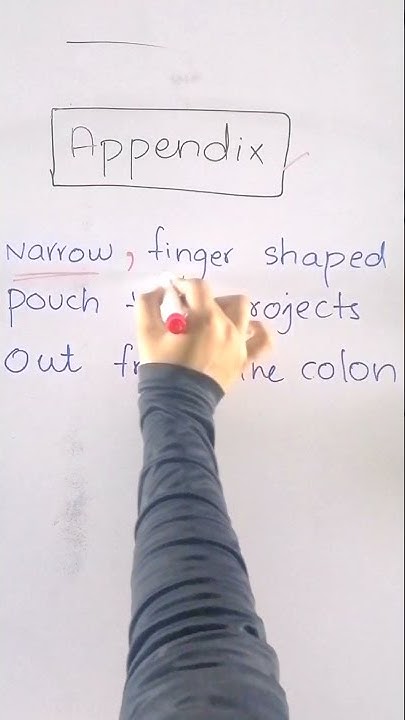 Appendix
Narrow, finger shaped
Pouch rojects
Out fr he colon